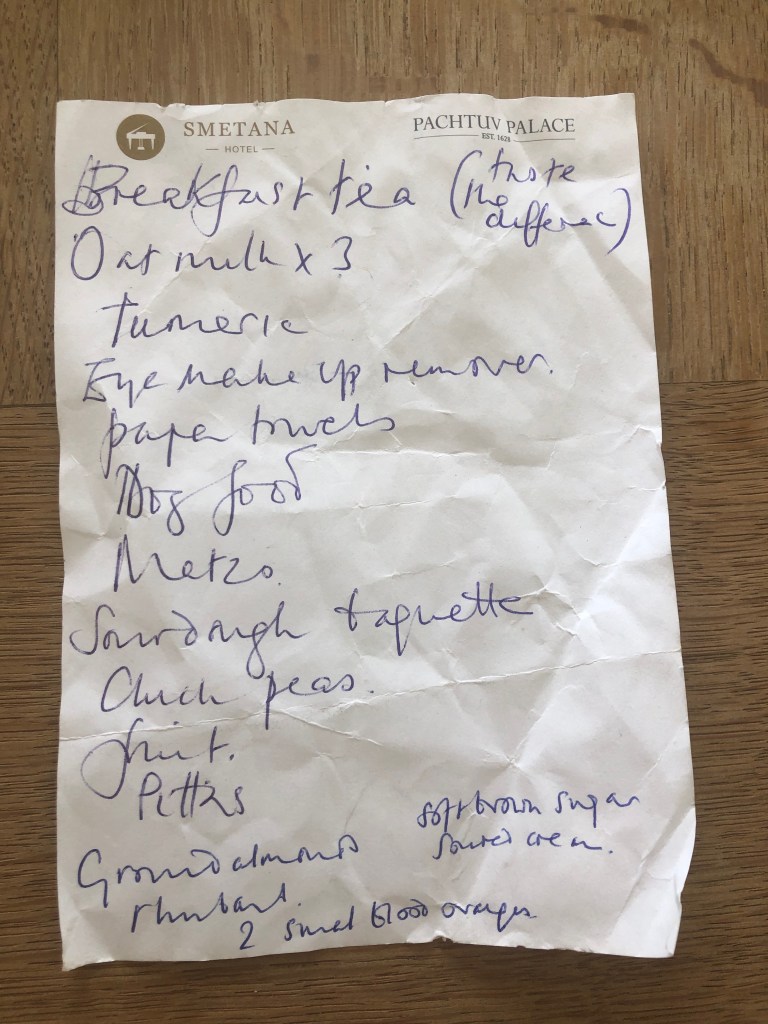 SMETANA
— HOTEL —
PACHTUV PALACE
EST. 1628
Breakfast tea (taste
the
difference)
Oat milk x 3
tumeric
Eye make up remover.
paper towels
Dog food
Matzo.
Sourdough baguette
Chick peas.
fruit.
Pittas
soft brown sugar
soured cream.
Ground almonds
rhubarb.
2 small blood oranges